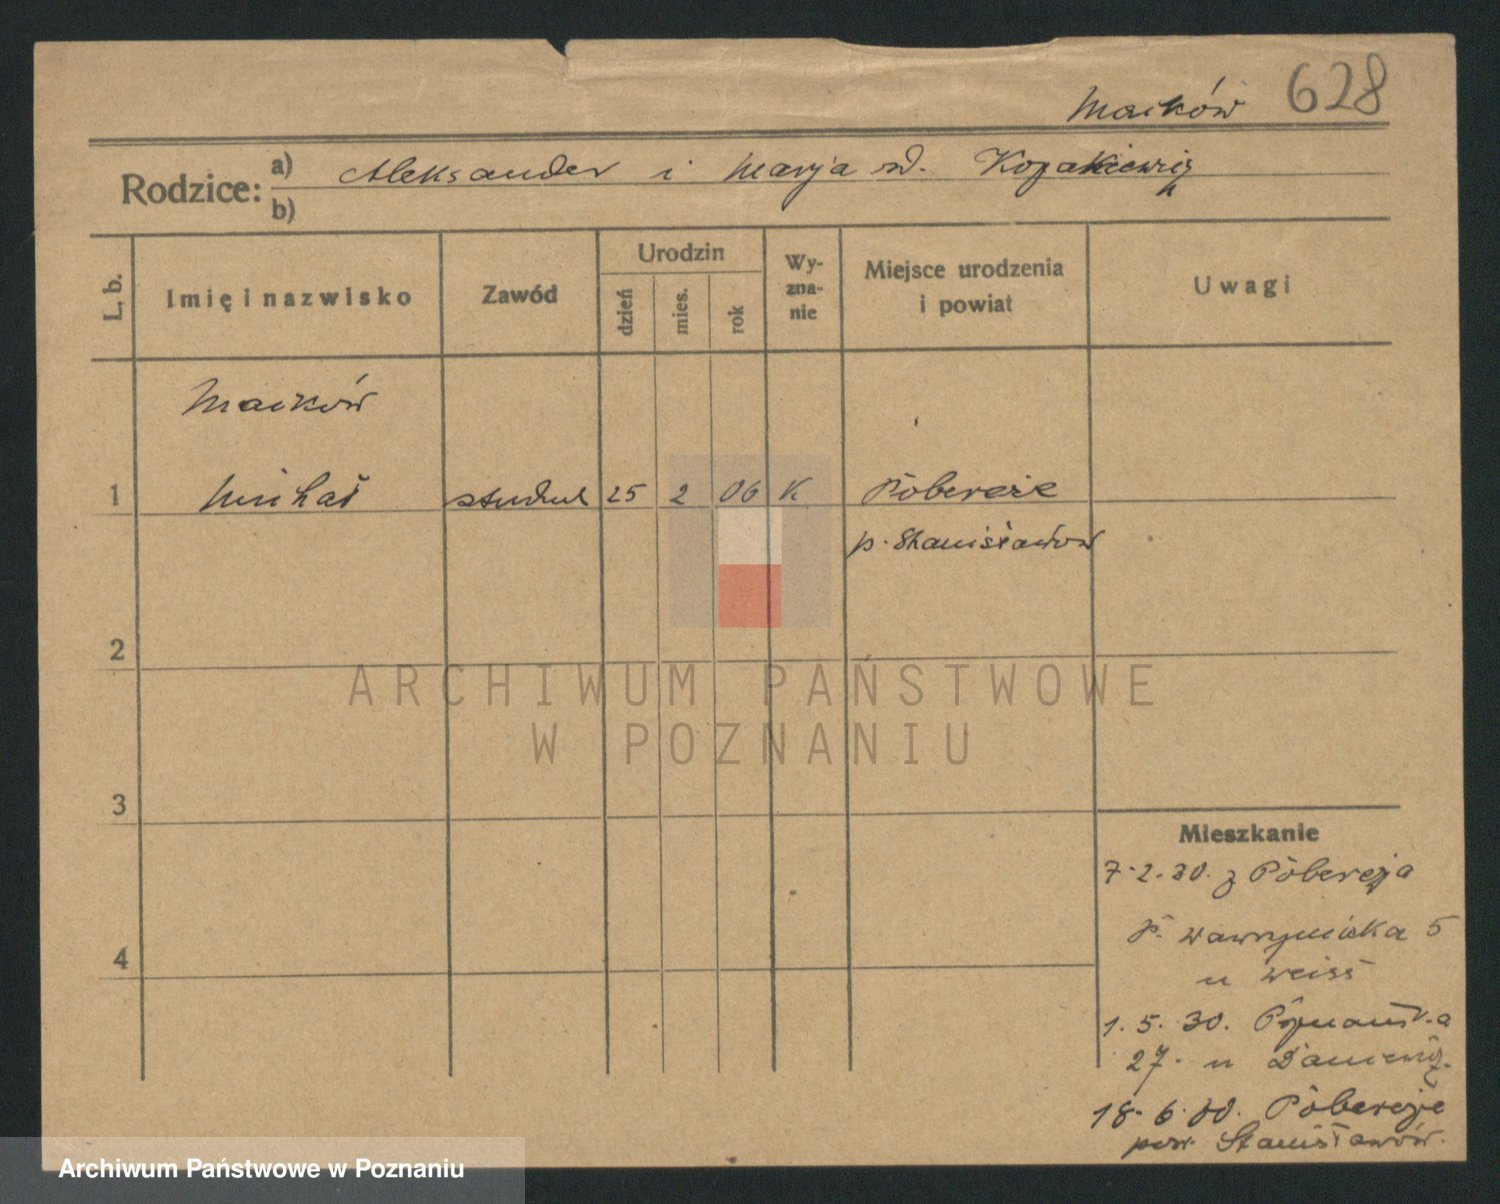 628
Maików
Rodzice: a) Aleksander i Marja zd. Kozakiewicz
b)
L. b.
Imię i nazwisko
Zawód
Urodzin
dzień
mies.
rok
Wy-
zna-
nie
Miejsce urodzenia
i powiat
Uwagi
Maików
1 Michał student 25 2 06 K. Pobereże
p. Stanisławow
2
3
4
Mieszkanie
7.2.30. z Pobereża
Wawrzyniaka 5
u Weiss
1.5.30. Poznańska
27. u
18.6.30. Pobereże
pow. Stanisławów.
ARCHIWUM PAŃSTWOWE
W POZNANIU
Archiwum Państwowe w Poznaniu